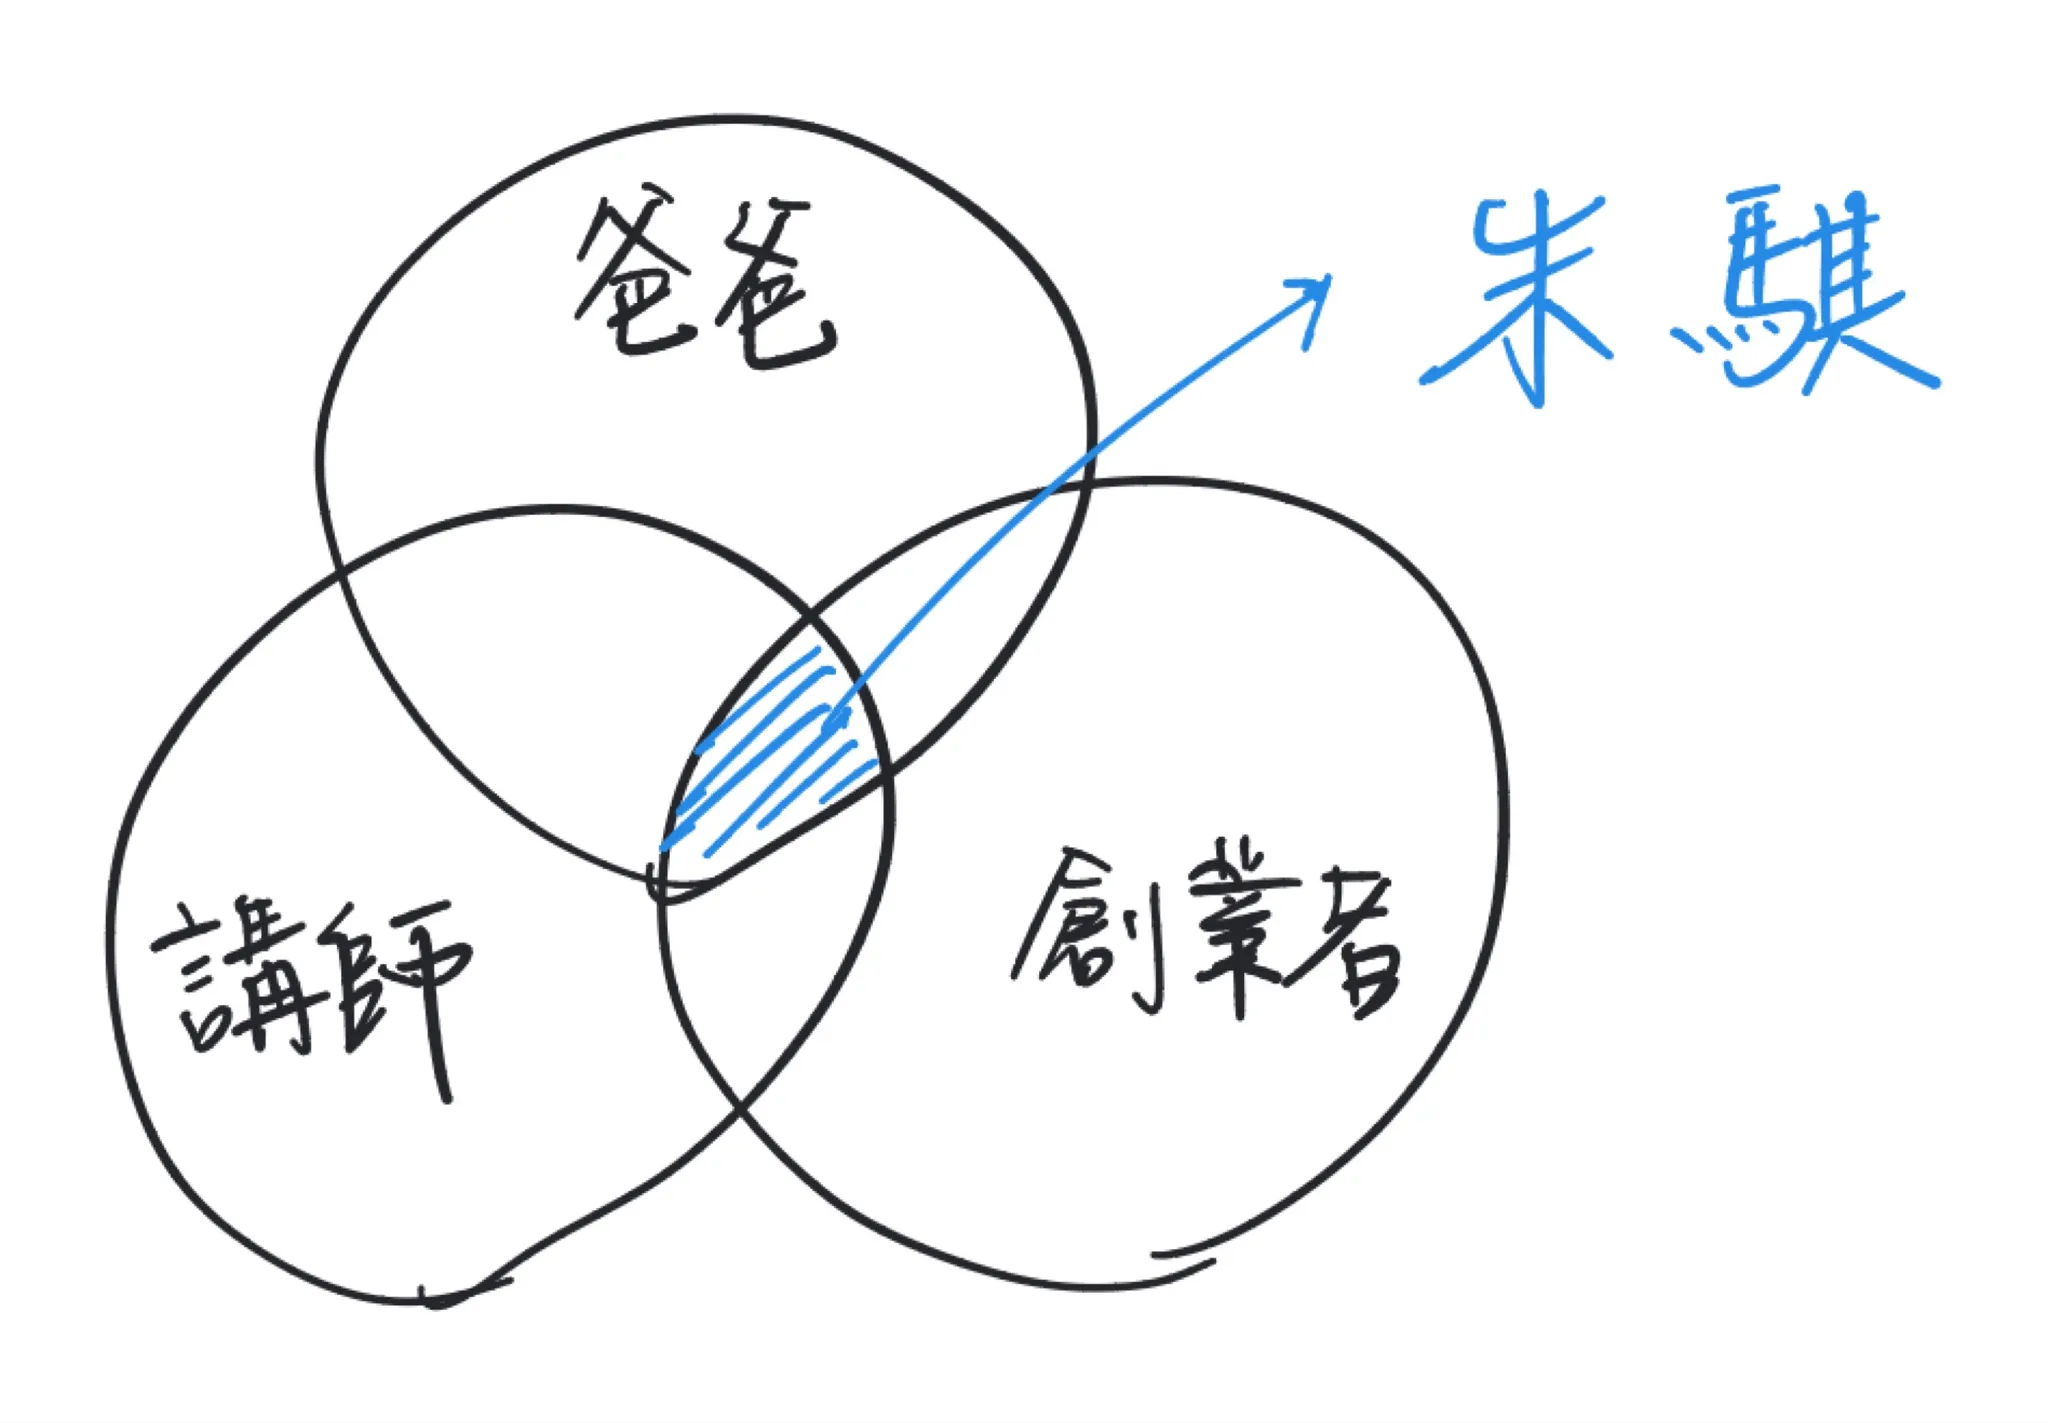 爸爸
朱騏
講師
創業者